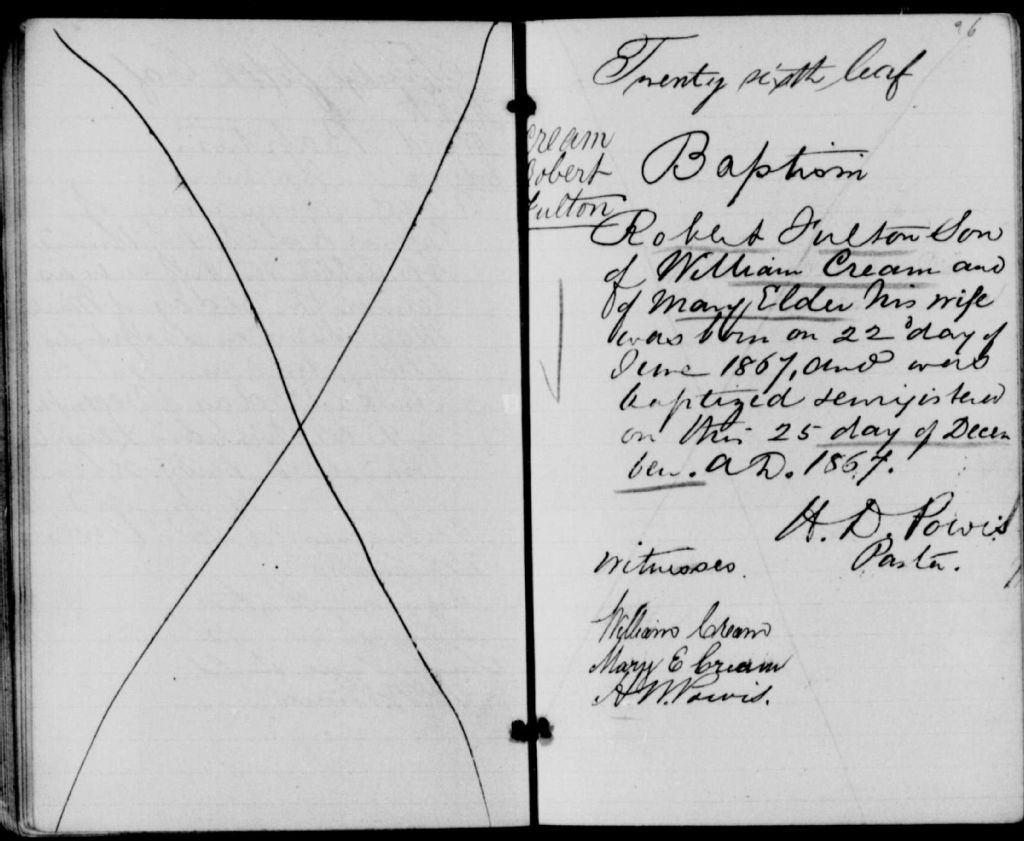 26
Twenty sixth leaf
Cream
Robert
Fulton
Baptism
Robert Fulton Son
of William Cream and
of Mary Elder his wife
was born on 22d day of
June 1867, and were
baptized & registered
on this 25 day of Decem
ber. A D. 1867.
H. D. Powis
Pastor.
Witnesses.
William Cream
Mary E Cream
A. W. Powis.